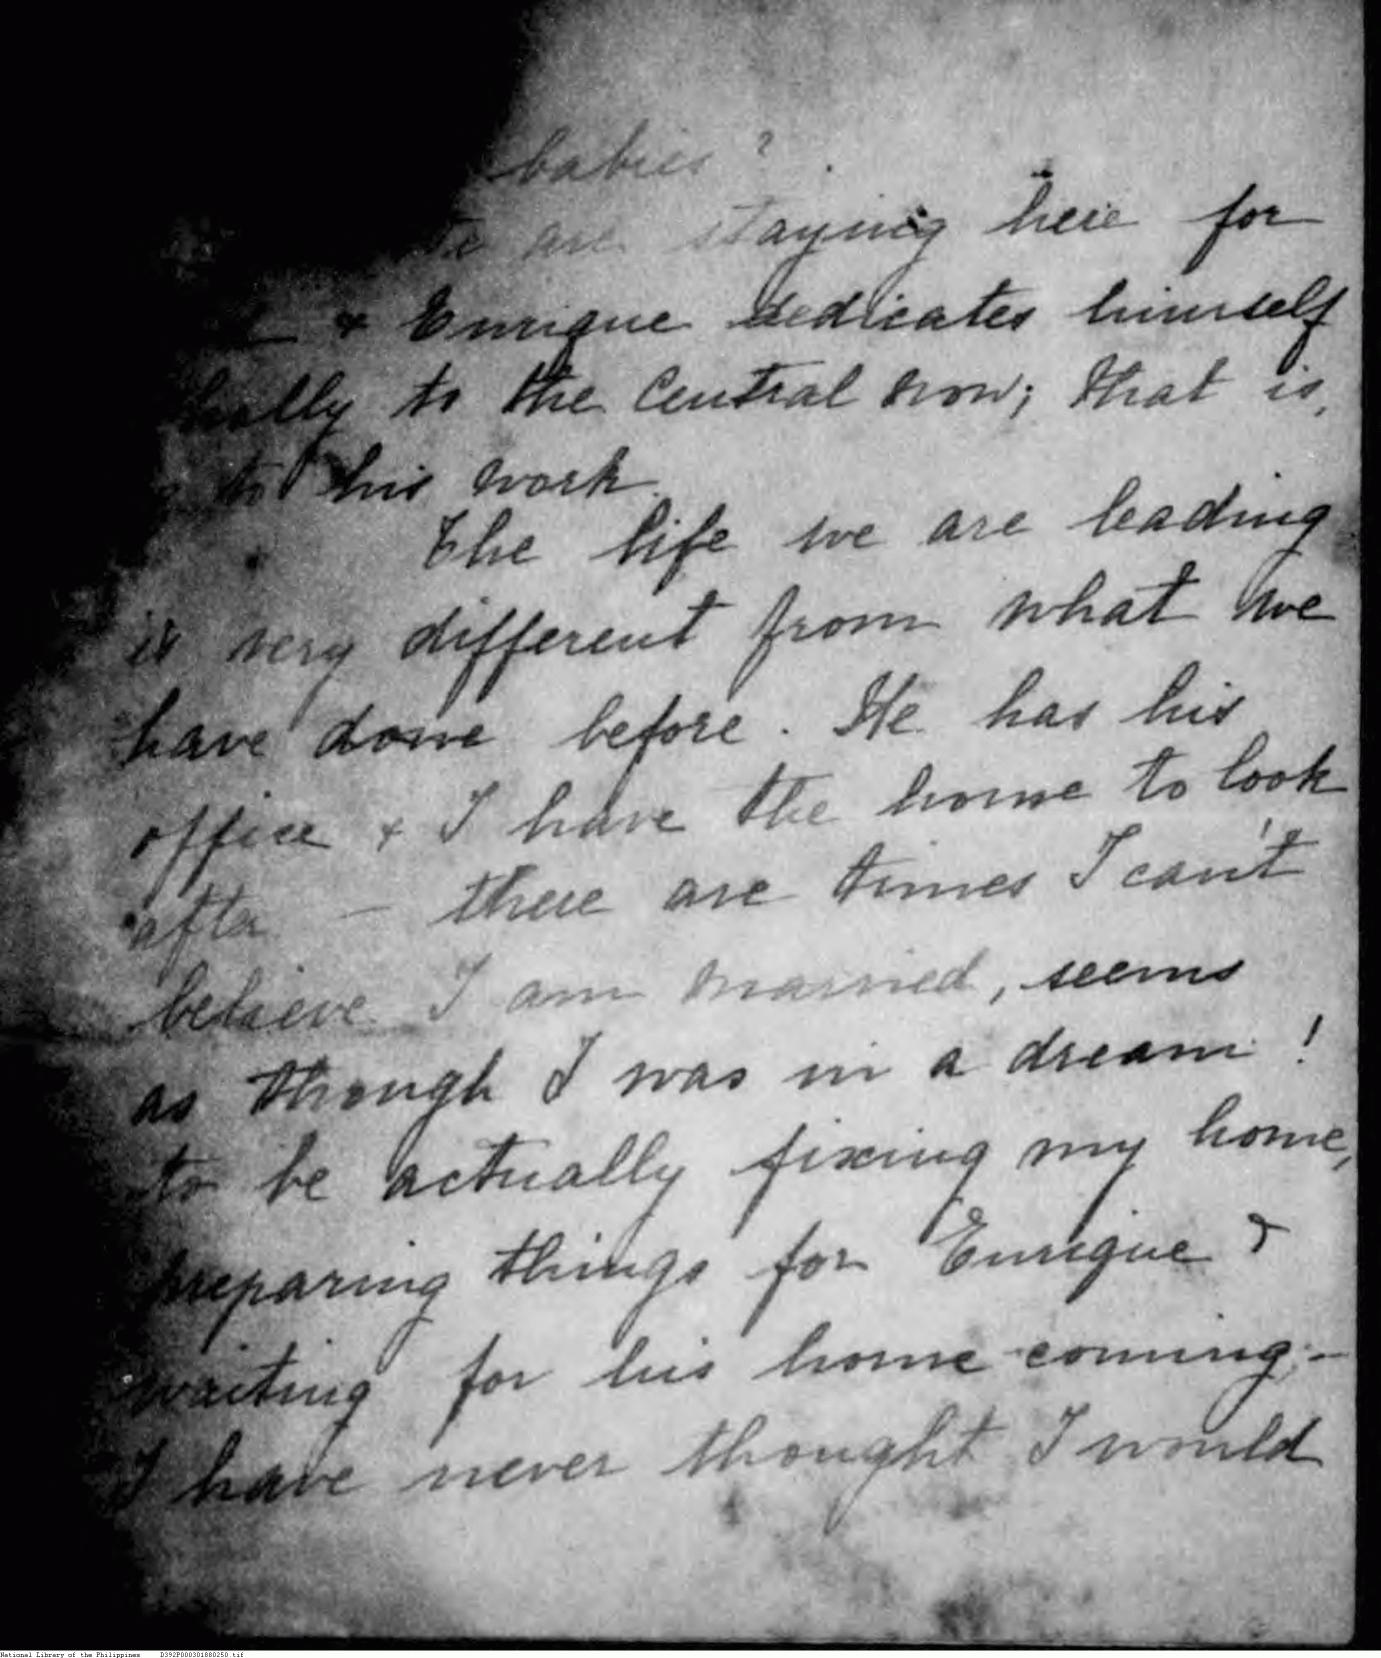 babies?
are staying here for
& Enrique dedicates himself
to the Central now; that is,
to his work.
The life we are leading
is very different from what we
have done before. He has his
office & I have the home to look
after — there are times I can't
believe I am married, seems
as though I was in a dream!
to be actually fixing my home,
preparing things for Enrique &
waiting for his home-coming; -
I have never thought I would
National Library of the Philippines D392P000301880250.tif